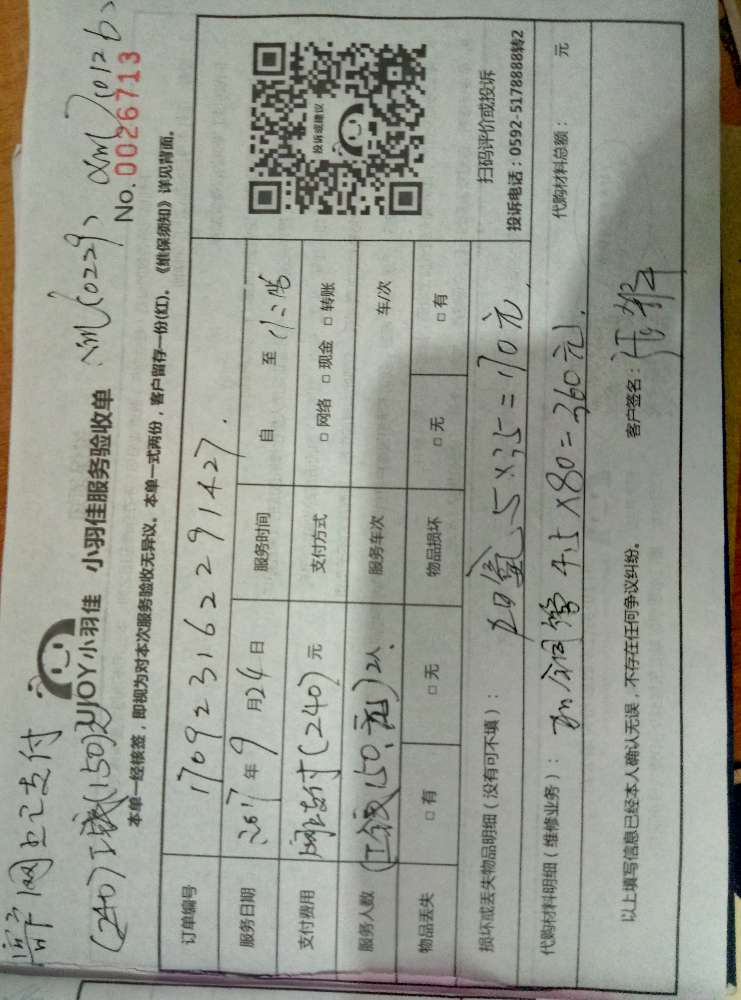 客户网上已支付
(240)工钱(150)元
UJOY小羽佳 小羽佳服务验收单
xm(0229、xm)0126
No.0026713
本单一经核签，即视为对本次服务验收无异议。本单一式两份，客户留存一份(红)。《维保须知》详见背面。
订单编号 170923162291427
服务日期 2017年9月24日 服务时间 自 至
支付费用 网上支付(240)元 支付方式 □网络 □现金 □转账
服务人数 (工钱150元)2人 服务车次 车/次
物品丢失 □有 □无 物品损坏 □无 □有
投诉或建议
扫码评价或投诉
投诉电话：0592-5178888转2
损坏或丢失物品明细（没有可不填）：
加氟 5×35=170元
代购材料明细（维修业务）： 加铜管 4.5×80=360元
代购材料总额： 元
以上填写信息已经本人确认无误，不存在任何争议纠纷。
客户签名：